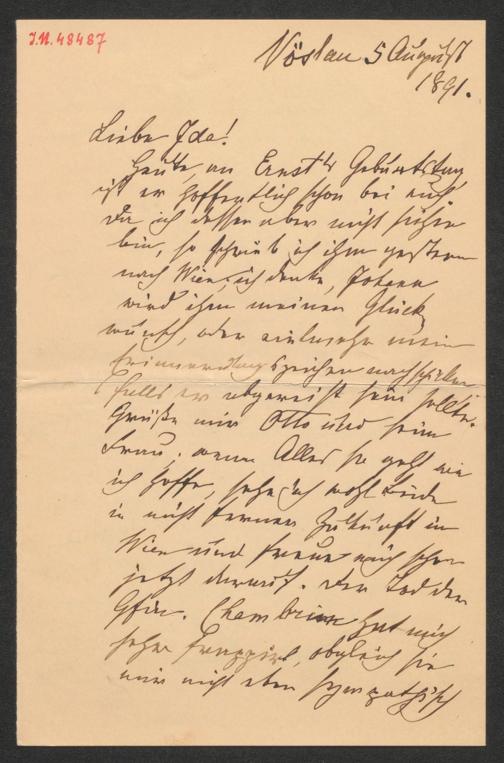 J.N. 48487
Vöslau 5 August
1891.
Liebe Ida!
Heute, an Ernst's Geburtstag
ist er hoffentlich schon bei euch,
da ich dessen aber nicht sicher
bin, so schrieb ich ihm gestern
nach Wien, ich denke, Johann
wird ihm meinen Glück
wunsch, oder vielmehr mein
Erinnerungszeichen nachschicken
falls er abgereist sein sollte.
Grüße mir Otto und seine
Frau; wenn Alles so geht wie
ich hoffe, sehe ich wohl Beide
in nicht ferner Zukunft in
Wien und freue mich schon
jetzt darauf. Der Tod der
Gfin. hat mich
sehr frappirt, obgleich sie
mir nicht eben sympathisch